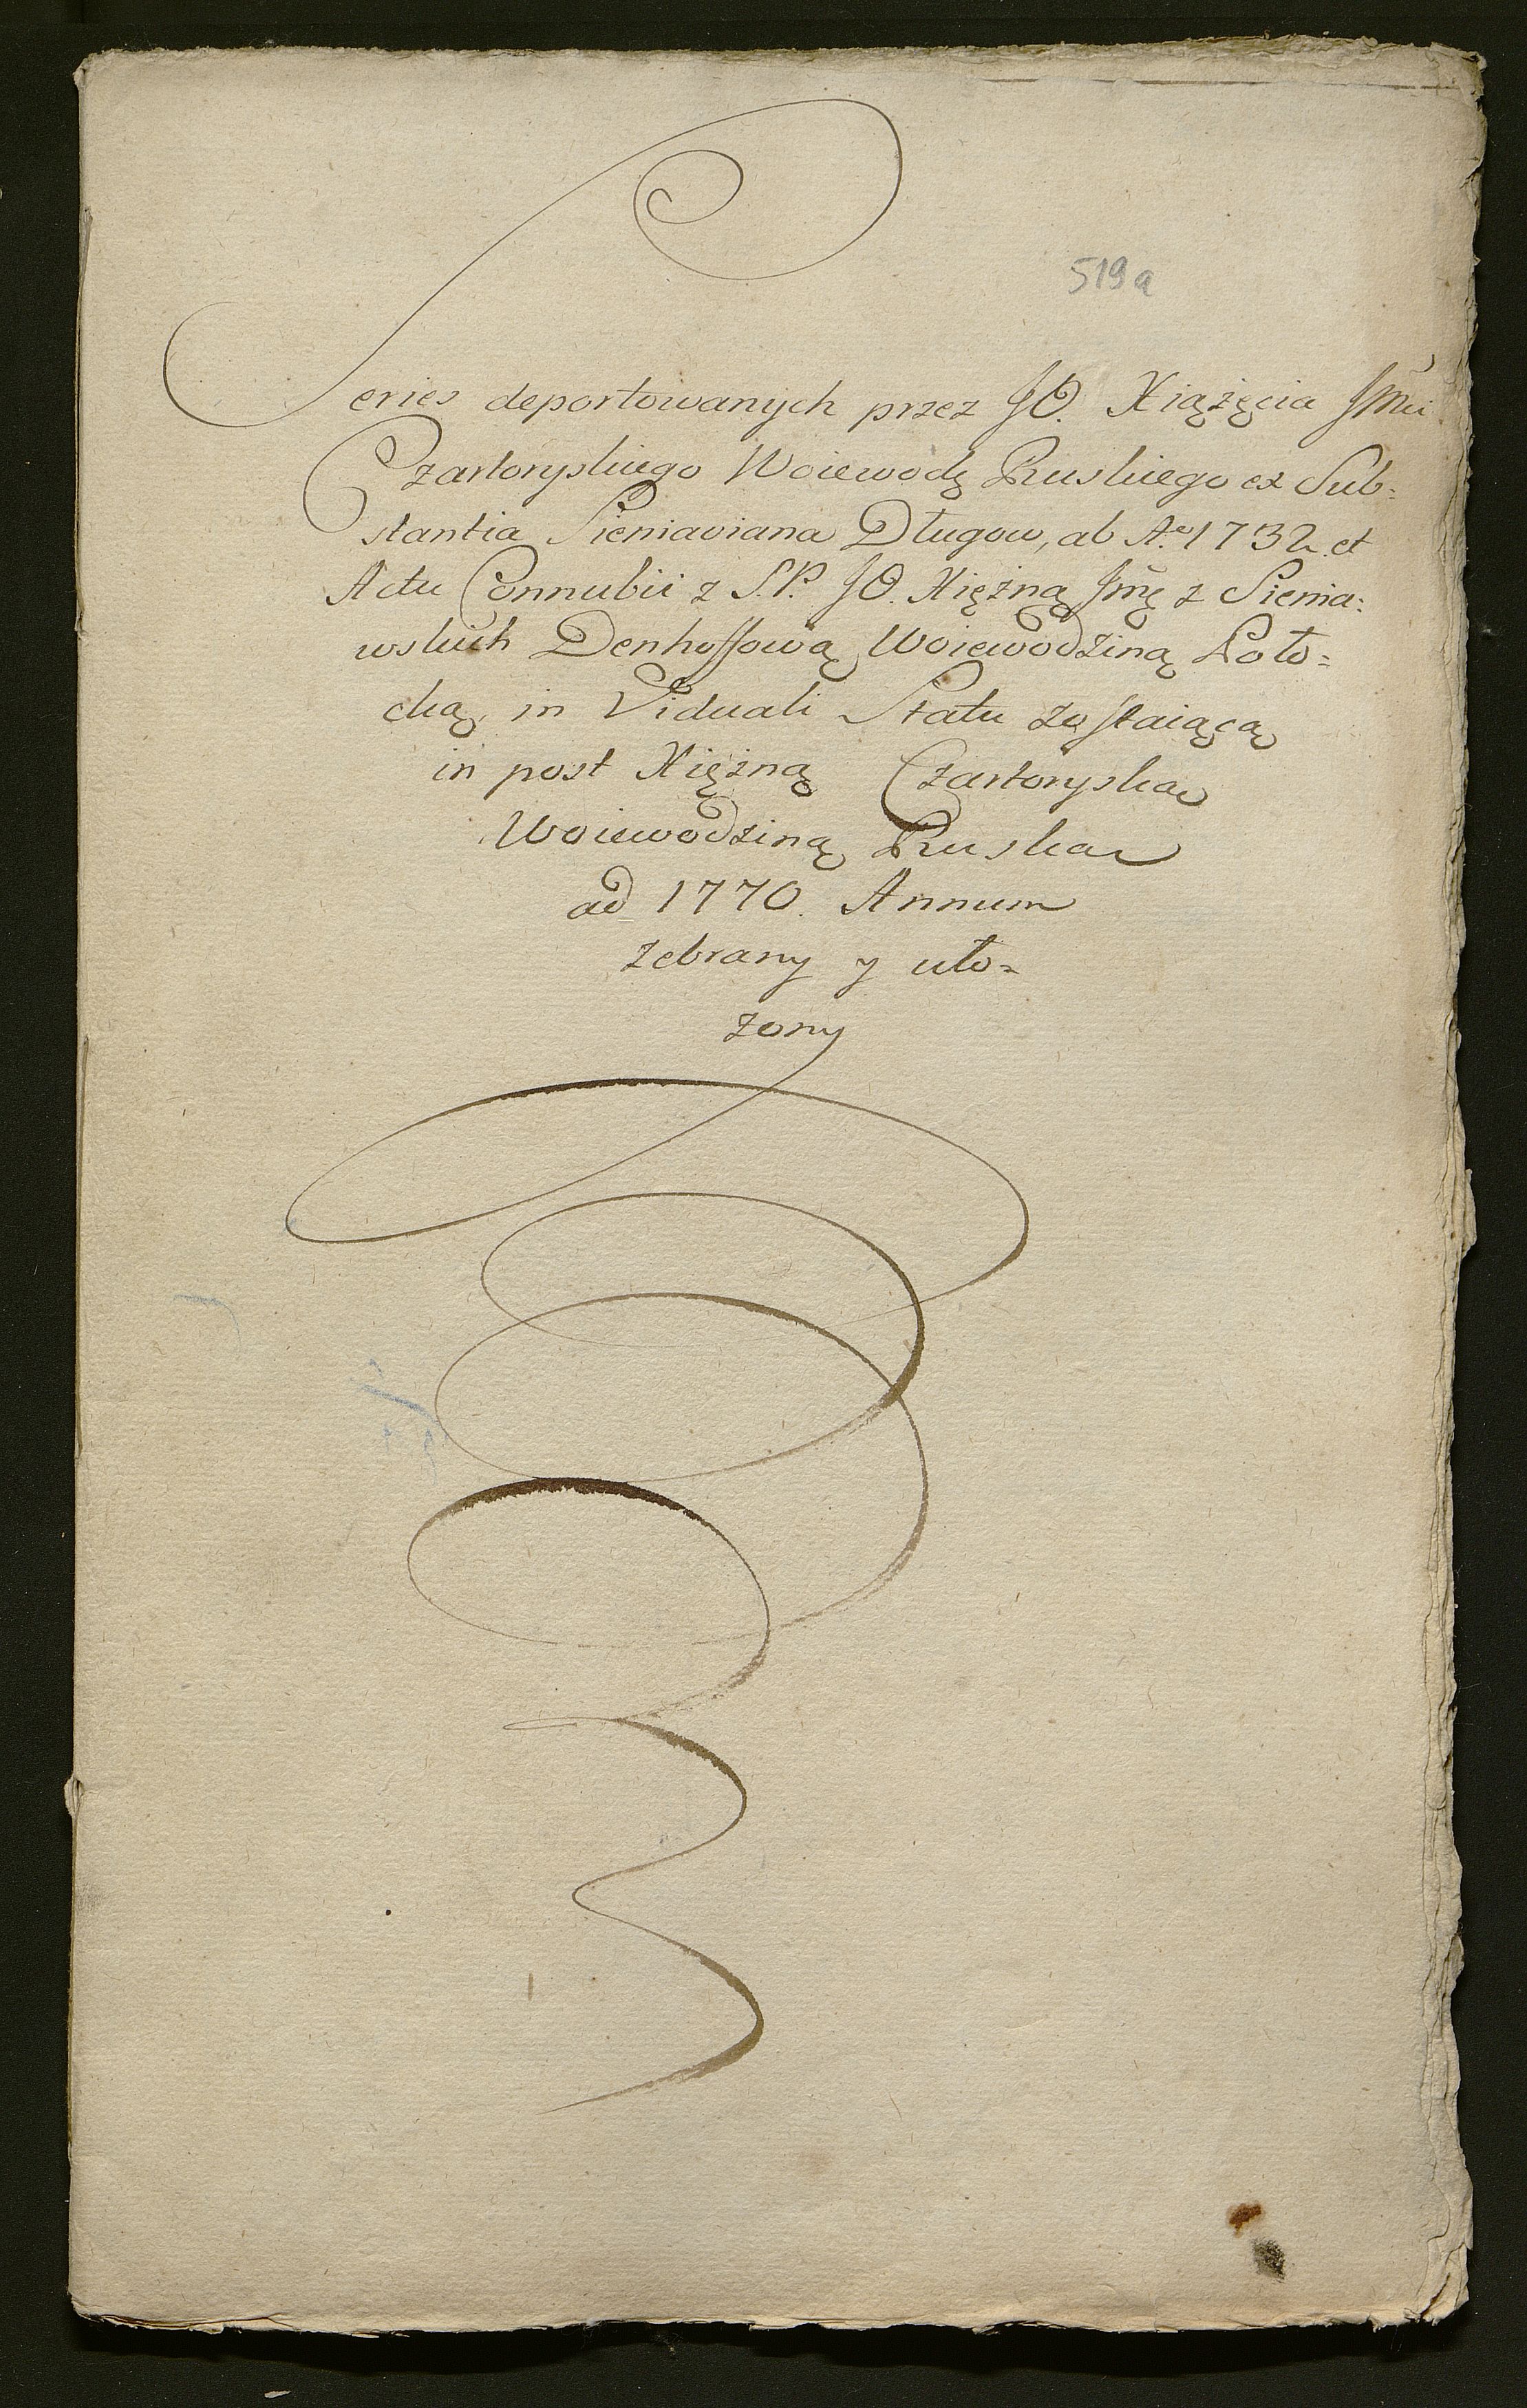 519a
Series deportowanych przez JO. Xiążęcia Jmci
Czartoryskiego Woiewodę Ruskiego ex Sub=
stantia Sieniaviana Długow, ab Ao 1732. et
Actu Connubii z S.P. JO. Xiężną Jmę z Sienia=
wskich Denhoffową Woiewodziną Poło=
cką, in Viduali Statu zostaiącą
in post Xiężną Czartoryską
Woiewodziną Ruską
ad 1770. Annum
zebrany y uło=
żony